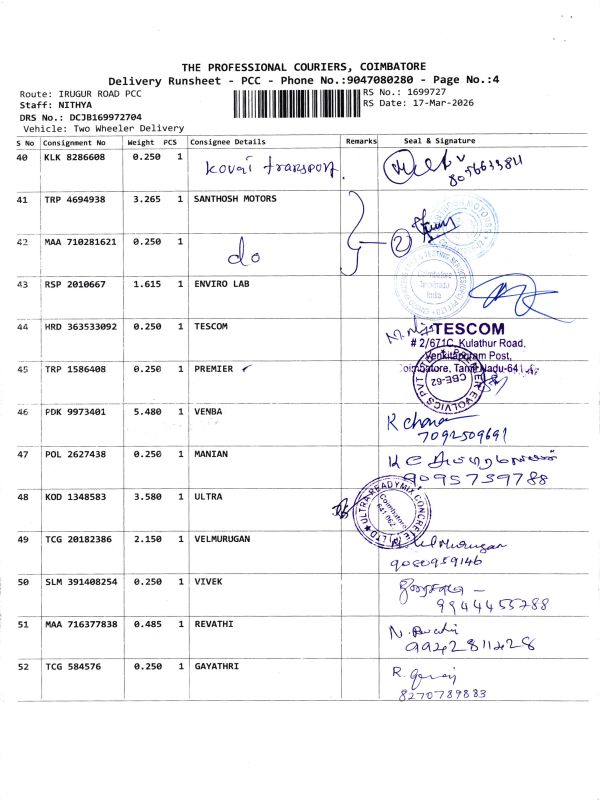 THE PROFESSIONAL COURIERS, COIMBATORE
Delivery Runsheet - PCC - Phone No.:9047080280 - Page No.:4
Route: IRUGUR ROAD PCC
Staff: NITHYA
DRS No.: DCJB169972704
Vehicle: Two Wheeler Delivery
RS No.: 1699727
RS Date: 17-Mar-2026
S No Consignment No Weight PCS Consignee Details Remarks Seal & Signature
40 KLK 8286608 0.250 1 Kovai transport.
41 TRP 4694938 3.265 1 SANTHOSH MOTORS
42 MAA 710281621 0.250 1 do 2
43 RSP 2010667 1.615 1 ENVIRO LAB
Coimbatore
India
44 HRD 363533092 0.250 1 TESCOM
TESCOM
# 2/671C, Kulathur Road,
Venkitapuram Post,
Coimbatore, Tamil Nadu-641
45 TRP 1586408 0.250 1 PREMIER
CBE-62
46 PDK 9973401 5.480 1 VENBA
7092509691
47 POL 2627438 0.250 1 MANIAN
9095739788
48 KOD 1348583 3.580 1 ULTRA
ULTRA READYMIX CONCRETE
Coimbatore
641 062
49 TCG 20182386 2.150 1 VELMURUGAN
9080959146
50 SLM 391408254 0.250 1 VIVEK
9944455788
51 MAA 716377838 0.485 1 REVATHI
9942811428
52 TCG 584576 0.250 1 GAYATHRI
8270789883